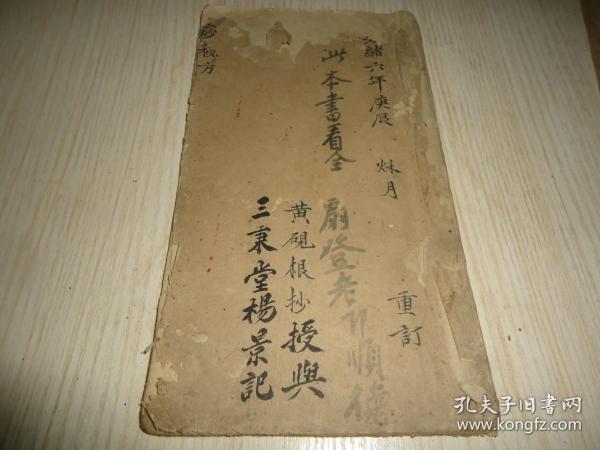 光緒六年庚辰 秌月
重訂
此本書看全
順德
黃硯根抄授與
三秉堂楊景記
秘方
孔夫子旧书网
www.kongfz.com